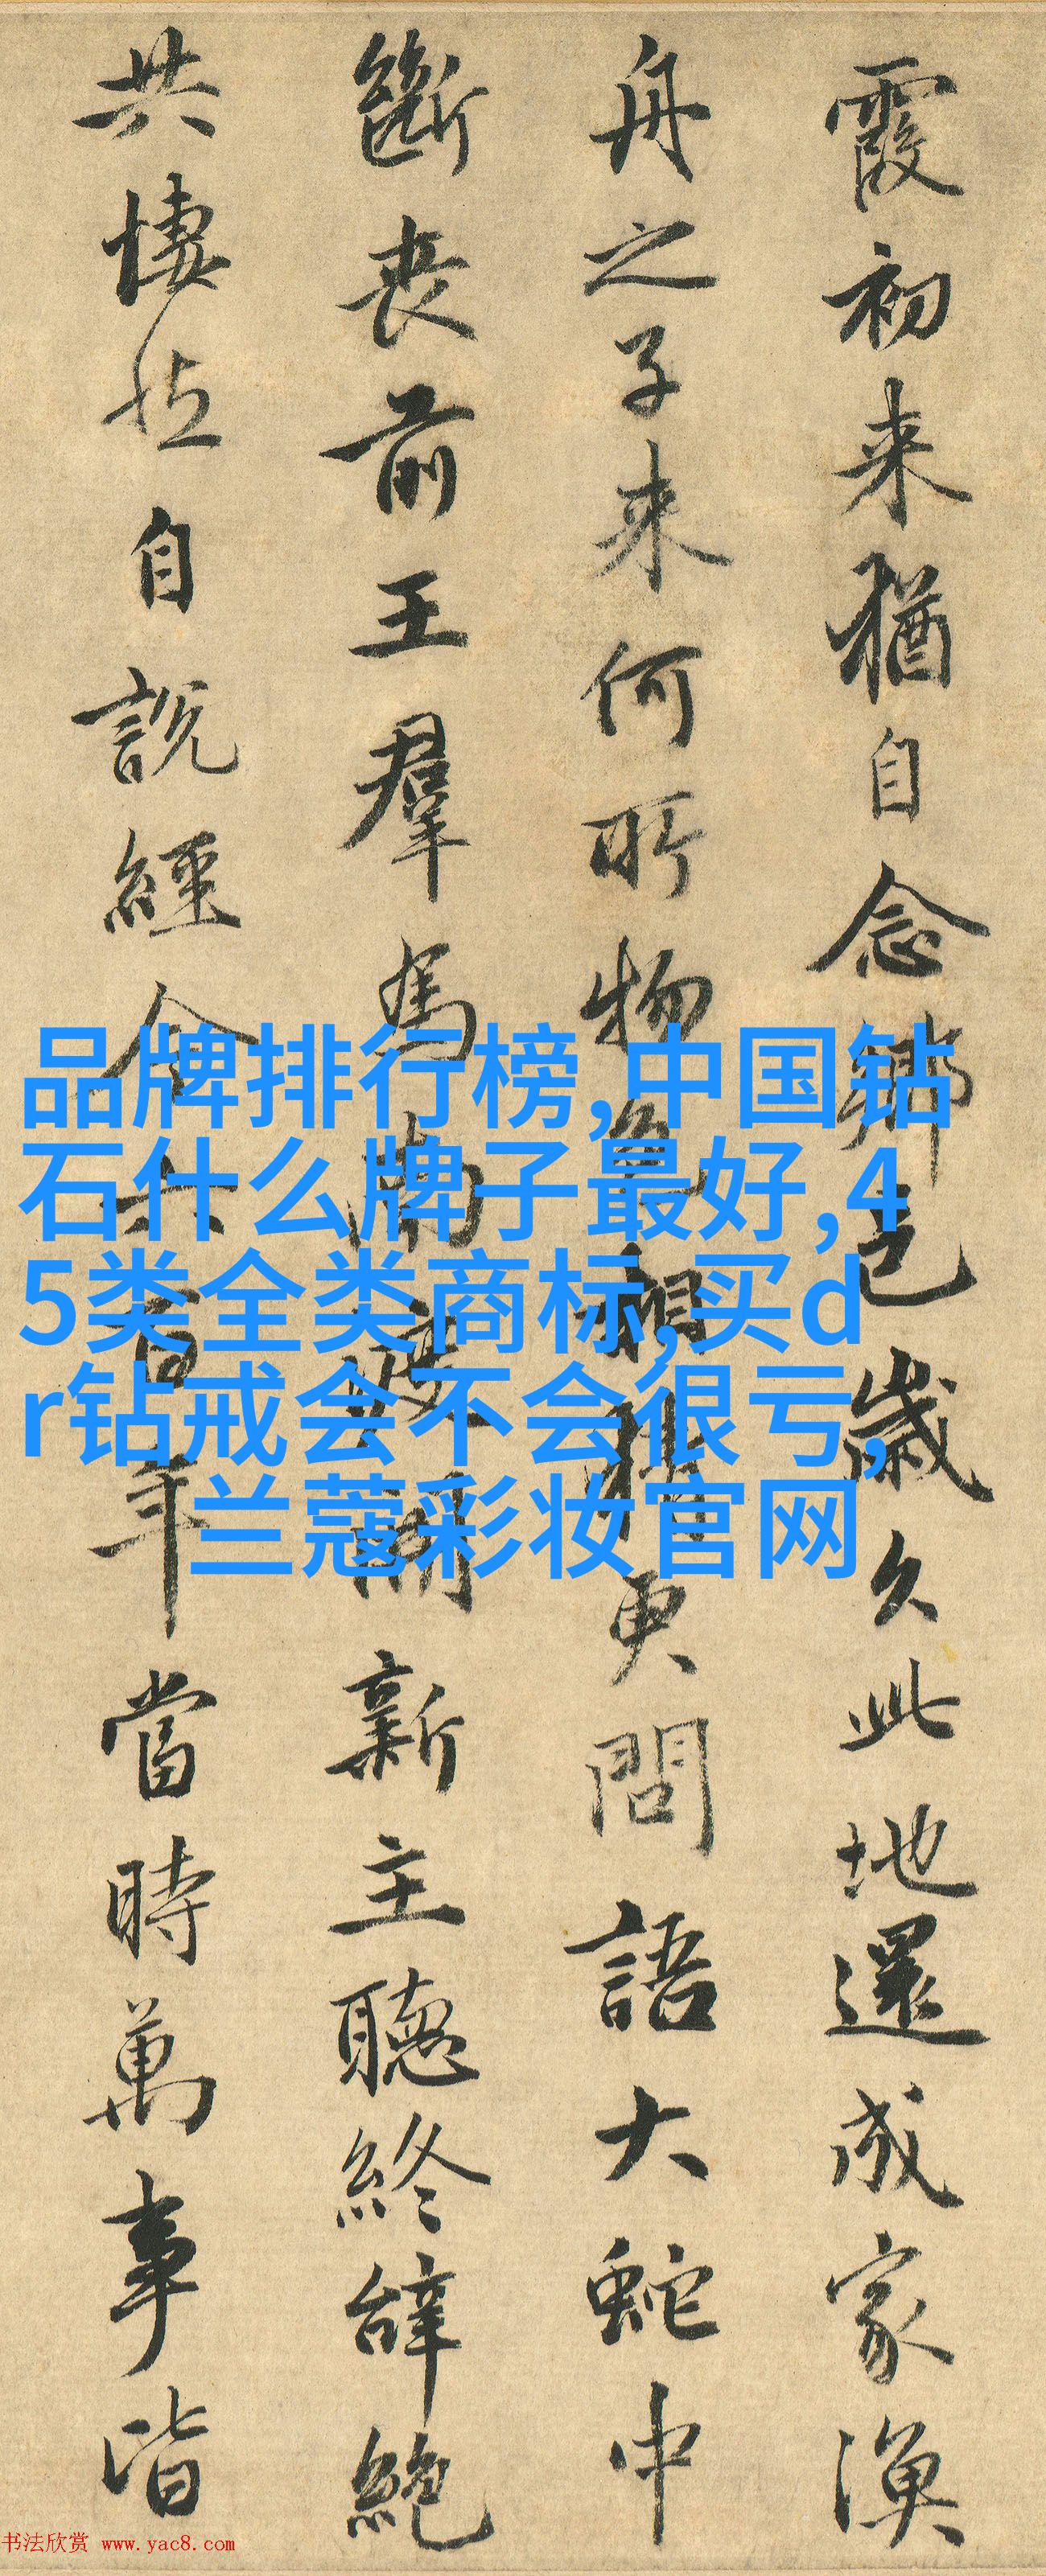 霞初来猶自念鄉邑歲久此地還成家漁
舟之子来何所物色相猜更問語大蛇中
斷喪前王羣馬南渡開新主聽終辭絕
共悽然自說經今六百年當時萬事皆
品牌排行榜,中国钻
石什么牌子最好,4
5类全类商标,买d
r钻戒会不会很亏,
兰蔻彩妆官网
书法欣赏 www.yac8.com